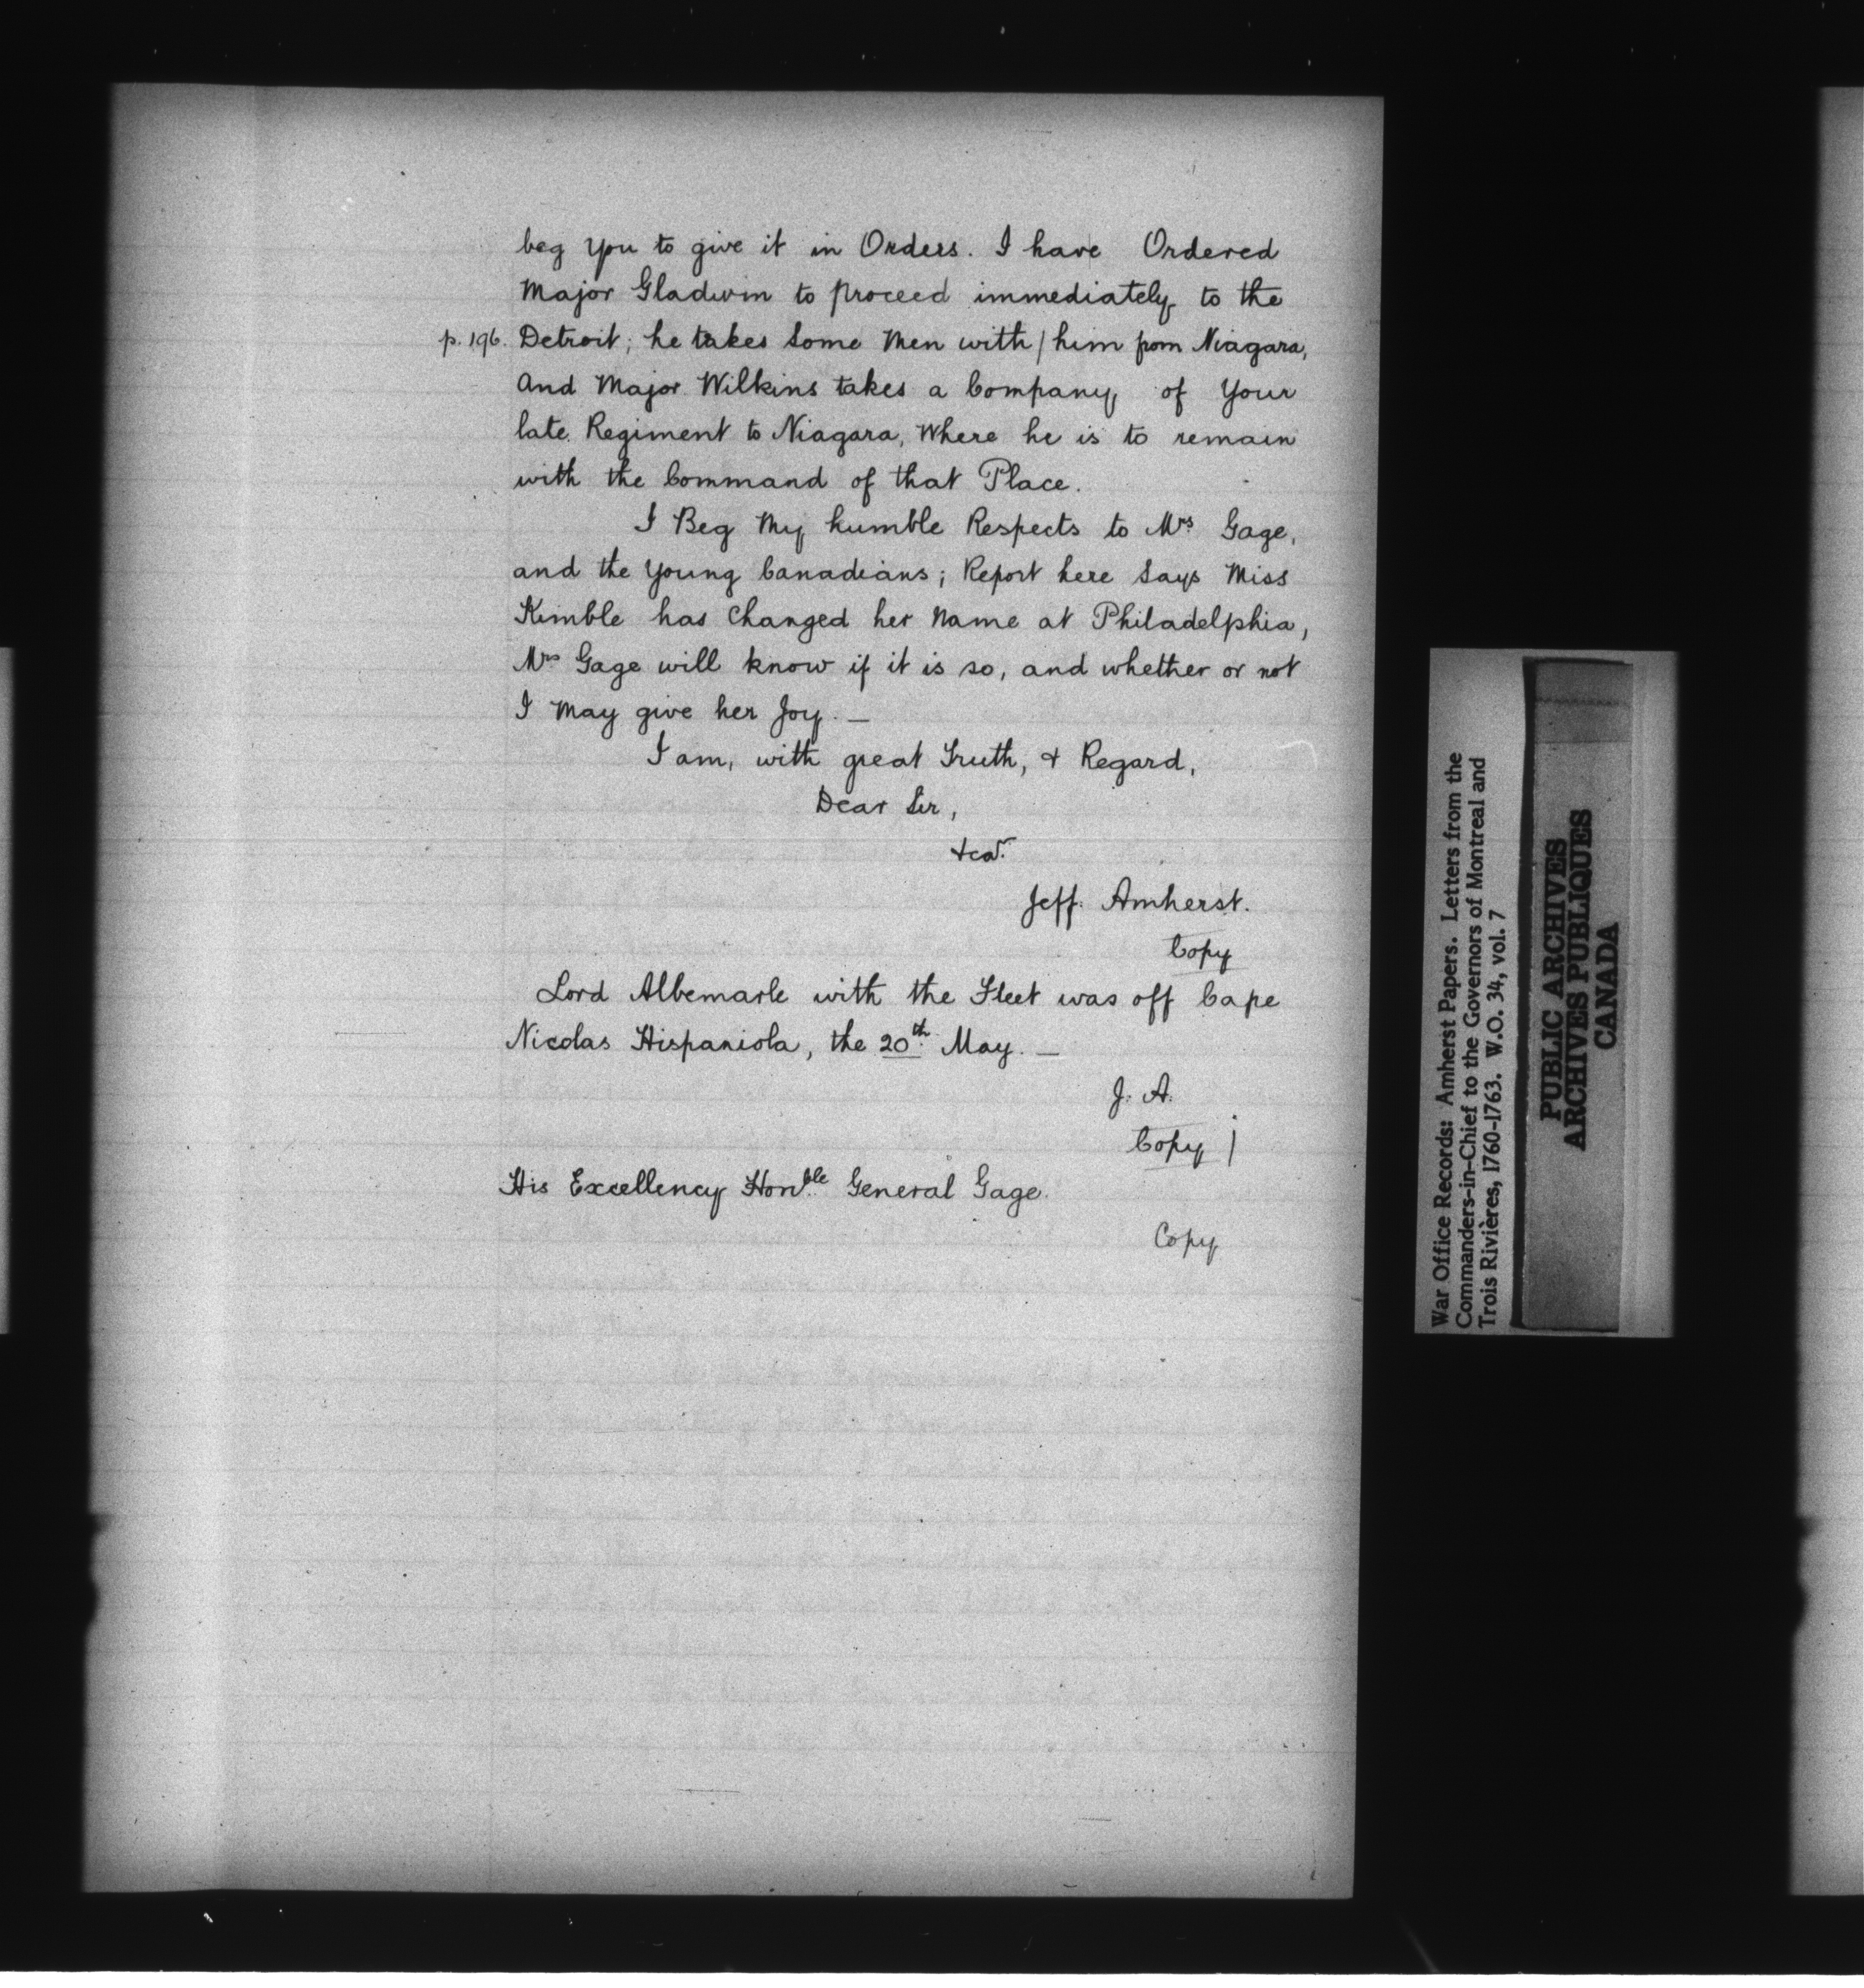 beg you to give it in Orders. I have Ordered
Major Gladwin to proceed immediately to the
p. 196. Detroit; he takes Some Men with / him from Niagara,
And Major Wilkins takes a Company of Your
late Regiment to Niagara, Where he is to remain
with the Command of that Place.
I Beg My humble Respects to Mrs Gage,
and the Young Canadians; Report here Says Miss
Kimble has Changed her Name at Philadelphia,
Mrs Gage will know if it is so, and whether or not
I May give her Joy. —
I am, with great Truth, & Regard,
Dear Sir,
&ca.
Jeff. Amherst.
Copy
Lord Albemarle with the Fleet was off Cape
Nicolas Hispaniola, the 20th May. —
J. A.
Copy /
His Excellency Honble General Gage.
Copy
War Office Records: Amherst Papers. Letters from the
Commanders-in-Chief to the Governors of Montreal and
Trois Rivières, 1760-1763. W.O. 34, vol. 7
PUBLIC ARCHIVES
ARCHIVES PUBLIQUES
CANADA